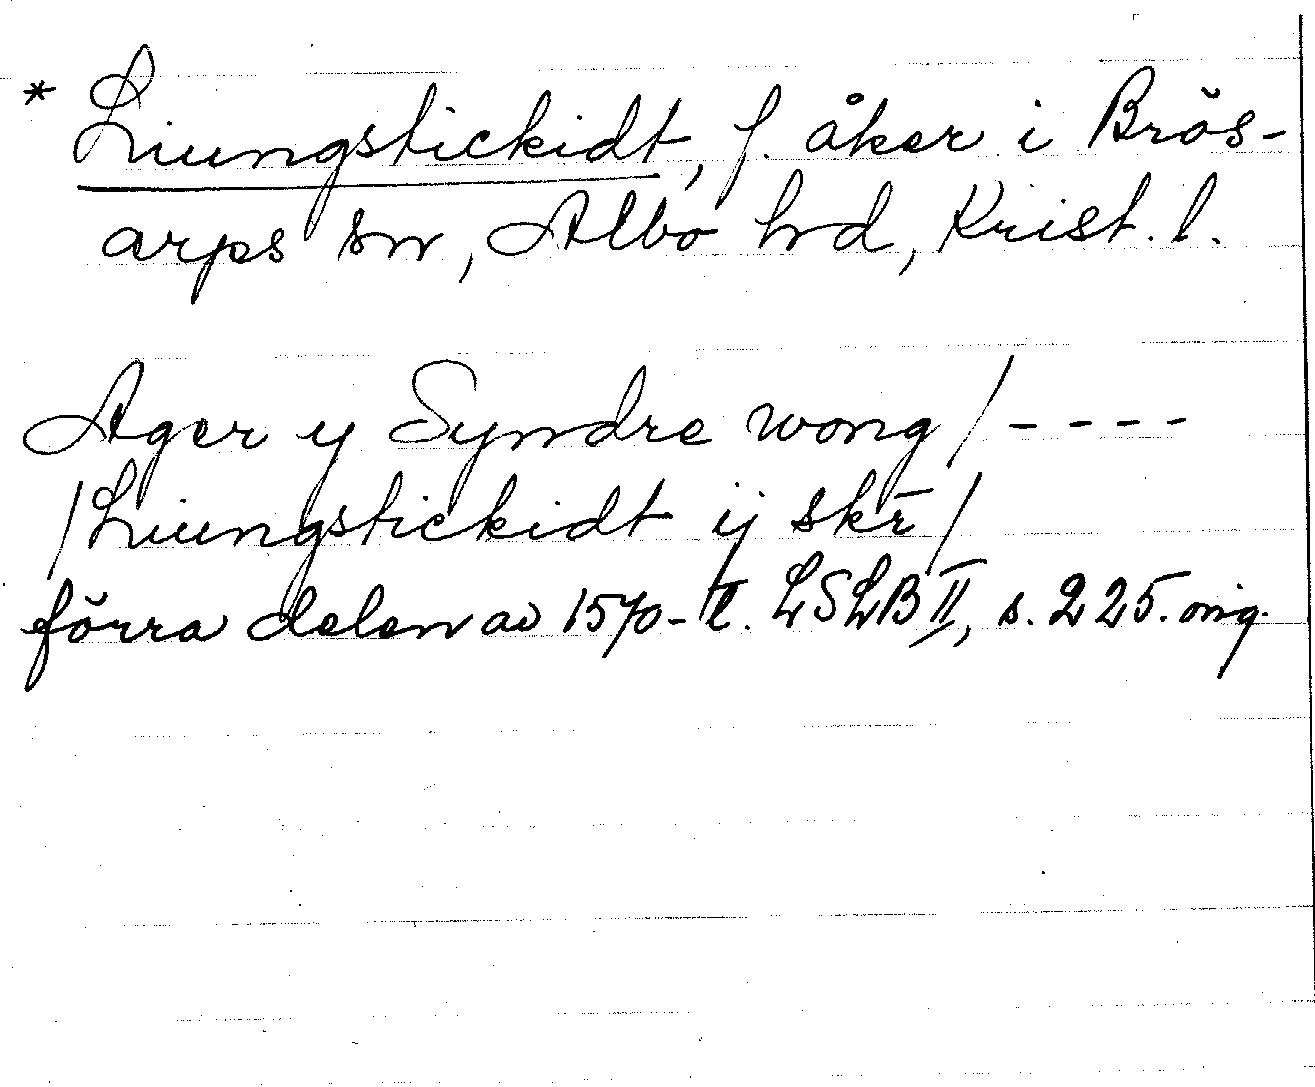 * Liungstickidt, f. åker i Brös-
arps sn, Albo hd, Krist. l.
Ager y Syndre wong / - - - -
/ Liungstickidt ij skr̄ /
förra delen av 1570-t. LSLB II, s. 225. orig.